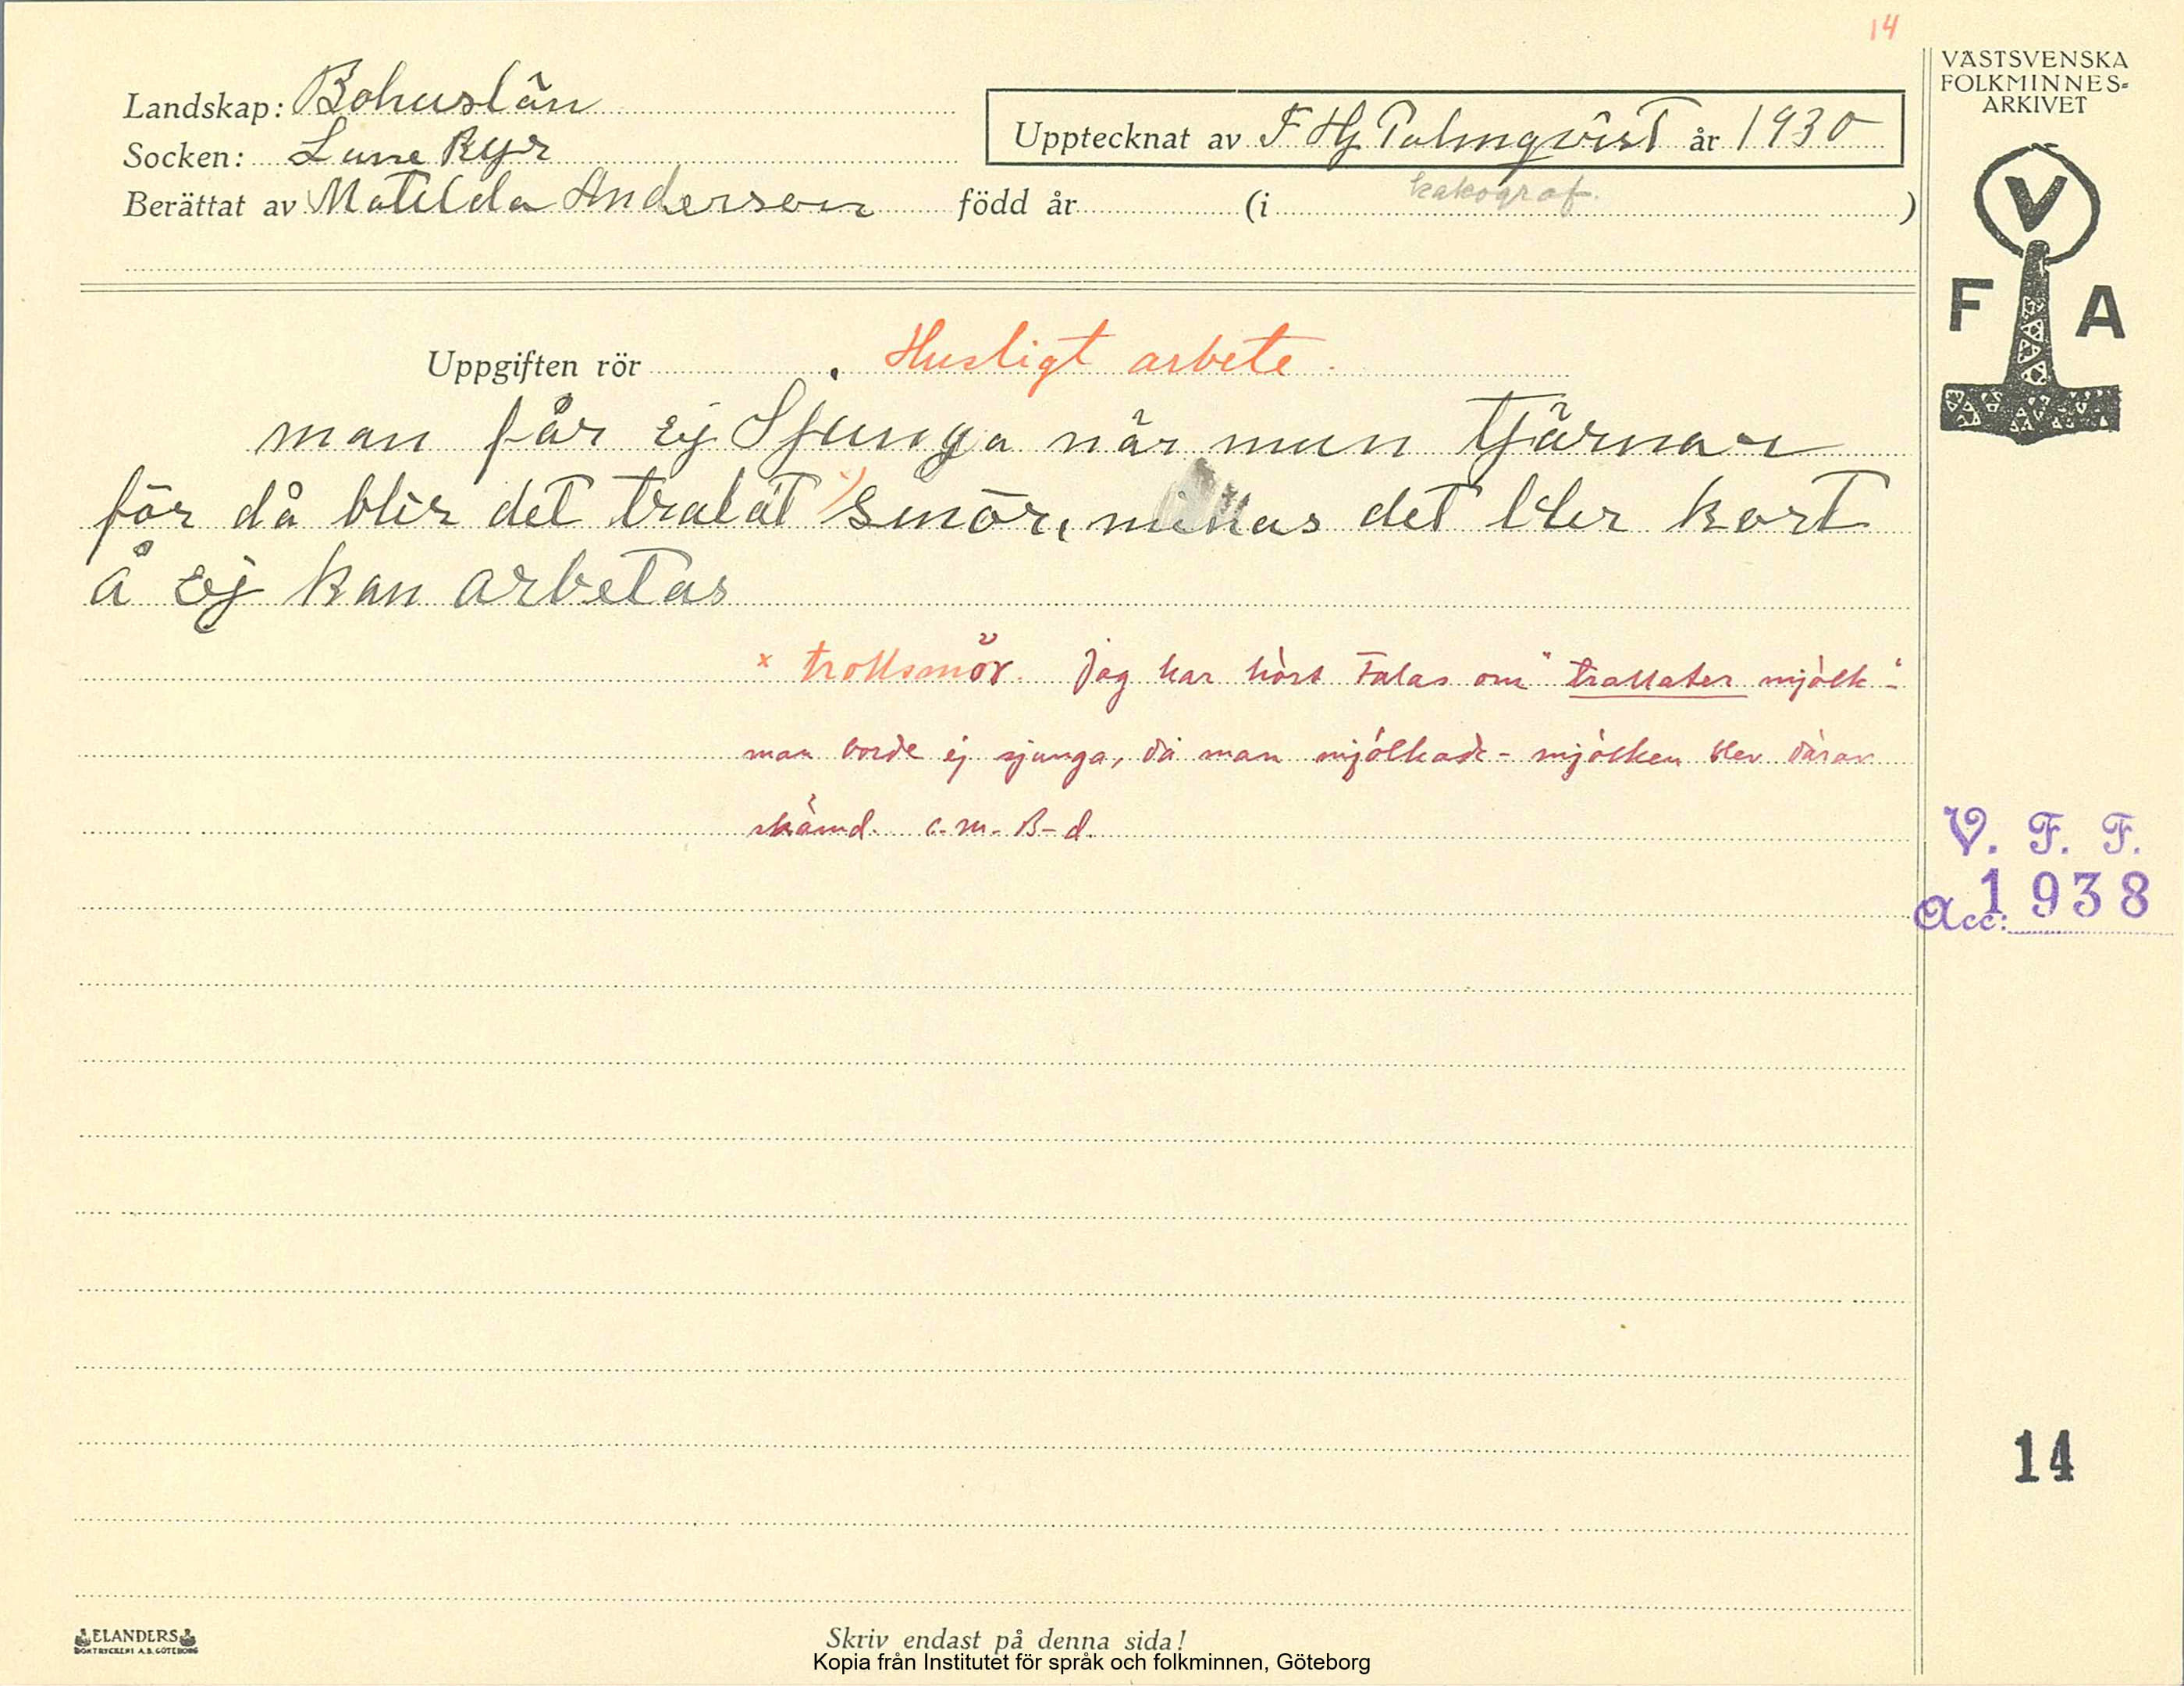 14
VÄSTSVENSKA
FOLKMINNES=
ARKIVET
Landskap: Bohuslän
Socken: Lane Ryr
Upptecknat av F Hj Palmqvist år 1930
Berättat av Matilda Anderson född år (i kakograf. )
V
F A
Uppgiften rör Husligt arbete.
man får ej Sjunga när man tjärnar
för då blir det tralat x) smör, det bler kort
å ej kan arbetas
x trollsmör. Jag har hört talas om "trallater mjölk"-
man borde ej sjunga, då man mjölkade - mjölken blev därav
skämd. C.M. B-d.
V. F. F.
Acc: 1938
14
ELANDERS
BOKTRYCKERI A.B. GÖTEBORG
Skriv endast på denna sida!
Kopia från Institutet för språk och folkminnen, Göteborg